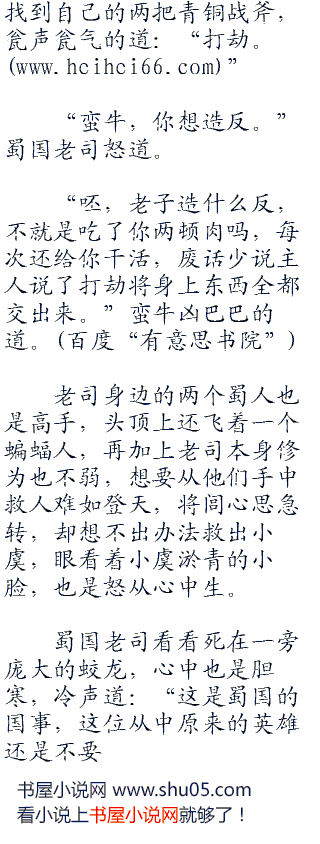 找到自己的两把青铜战斧，
瓮声瓮气的道：“打劫。
(www.hcihci66.com)”
“蛮牛，你想造反。”
蜀国老司怒道。
“呸，老子造什么反，
不就是吃了你两顿肉吗，每
次还给你干活，废话少说主
人说了打劫将身上东西全都
交出来。”蛮牛凶巴巴的
道。(百度“有意思书院”)
老司身边的两个蜀人也
是高手，头顶上还飞着一个
蝙蝠人，再加上老司本身修
为也不弱，想要从他们手中
救人难如登天，将闾心思急
转，却想不出办法救出小
虞，眼看着小虞淤青的小
脸，也是怒从心中生。
蜀国老司看看死在一旁
庞大的蛟龙，心中也是胆
寒，冷声道：“这是蜀国的
国事，这位从中原来的英雄
还是不要
书屋小说网 www.shu05.com
看小说上书屋小说网就够了！